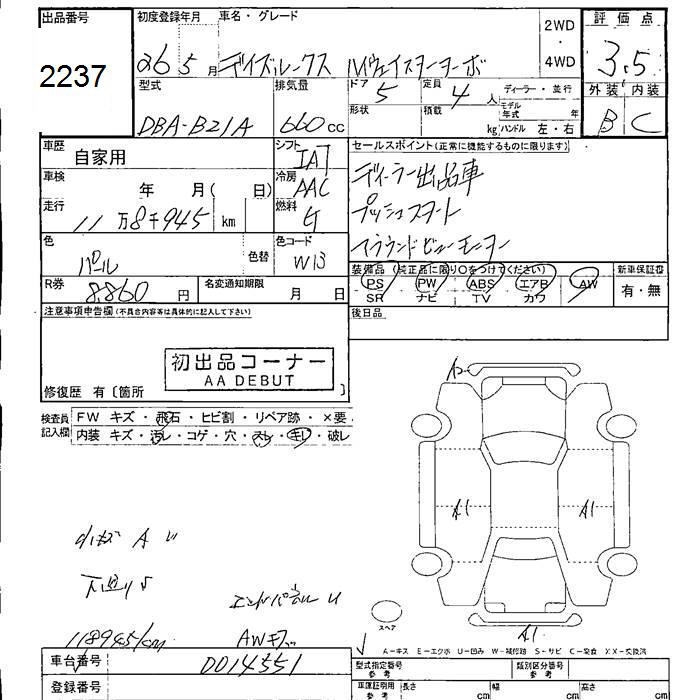 出品番号
2237
初度登録年月 車名・グレード
26 5月 デイズルークス ハイウェイスターターボ
2WD
・
4WD
評価点
3.5
外装 内装
B C
型式 排気量 ドア 5 定員 4人 ディーラー・並行
形状 積載 kg モデル年式 年
DBA-B21A 660cc ハンドル 左・右
車歴 自家用 シフト IAT
車検 年 月(日) 冷房 AAC
走行 11万8千945 km 燃料 ガ
色 パール 色替 色コード W13
R券 8,860円 名変通知期限 月 日
セールスポイント(正常に機能するものに限ります)
ディーラー出品車
プッシュスタート
アラウンドビューモニター
装備品(純正品に限り○をつけてください) 新車保証書
PS PW ABS エアB AW 有・無
SR ナビ TV カワ
後日品
注意事項申告欄(不具合内容等は具体的に記入して下さい)
初出品コーナー
AA DEBUT
修復歴 有〔箇所 〕
検査員記入欄 FW キズ・飛石・ヒビ割・リペア跡・×要
内装 キズ・汚レ・コゲ・穴・スレ・キレ・破レ
A1 A1
小キズ A U
下廻りS
エンドパネル U
スペア
118945km AWキズ A1
A-キス E-エクボ U-凹み W-補修跡 S-サビ C-腐食 XX-交換済
車台番号 0014551
登録番号
型式指定番号 参考 類別区分番号 参考
車庫証明用 参考 長さ cm 幅 cm 高さ cm